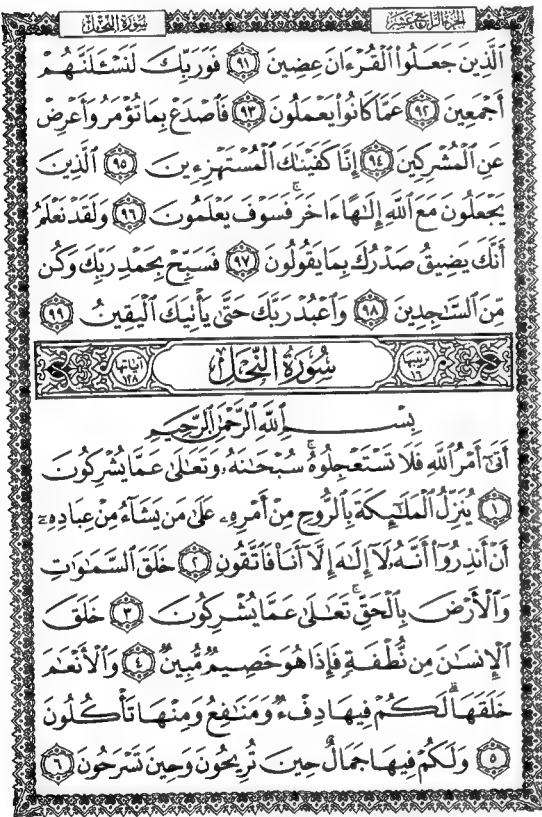 الجزء الرابع عشر
سورة النحل
ٱلَّذِينَ جَعَلُوا۟ ٱلْقُرْءَانَ عِضِينَ ٩١ فَوَرَبِّكَ لَنَسْـَٔلَنَّهُمْ
أَجْمَعِينَ ٩٢ عَمَّا كَانُوا۟ يَعْمَلُونَ ٩٣ فَٱصْدَعْ بِمَا تُؤْمَرُ وَأَعْرِضْ
عَنِ ٱلْمُشْرِكِينَ ٩٤ إِنَّا كَفَيْنَٰكَ ٱلْمُسْتَهْزِءِينَ ٩٥ ٱلَّذِينَ
يَجْعَلُونَ مَعَ ٱللَّهِ إِلَٰهًا ءَاخَرَ ۚ فَسَوْفَ يَعْلَمُونَ ٩٦ وَلَقَدْ نَعْلَمُ
أَنَّكَ يَضِيقُ صَدْرُكَ بِمَا يَقُولُونَ ٩٧ فَسَبِّحْ بِحَمْدِ رَبِّكَ وَكُن
مِّنَ ٱلسَّٰجِدِينَ ٩٨ وَٱعْبُدْ رَبَّكَ حَتَّىٰ يَأْتِيَكَ ٱلْيَقِينُ ٩٩
ترتيبها ١٦ سُورَةُ النَّحْلِ آياتها ١٢٨
بِسْمِ ٱللَّهِ ٱلرَّحْمَٰنِ ٱلرَّحِيمِ
أَتَىٰٓ أَمْرُ ٱللَّهِ فَلَا تَسْتَعْجِلُوهُ ۚ سُبْحَٰنَهُۥ وَتَعَٰلَىٰ عَمَّا يُشْرِكُونَ
١ يُنَزِّلُ ٱلْمَلَٰٓئِكَةَ بِٱلرُّوحِ مِنْ أَمْرِهِۦ عَلَىٰ مَن يَشَآءُ مِنْ عِبَادِهِۦٓ
أَنْ أَنذِرُوٓا۟ أَنَّهُۥ لَآ إِلَٰهَ إِلَّآ أَنَا۠ فَٱتَّقُونِ ٢ خَلَقَ ٱلسَّمَٰوَٰتِ
وَٱلْأَرْضَ بِٱلْحَقِّ ۚ تَعَٰلَىٰ عَمَّا يُشْرِكُونَ ٣ خَلَقَ
ٱلْإِنسَٰنَ مِن نُّطْفَةٍ فَإِذَا هُوَ خَصِيمٌ مُّبِينٌ ٤ وَٱلْأَنْعَٰمَ
خَلَقَهَا ۗ لَكُمْ فِيهَا دِفْءٌ وَمَنَٰفِعُ وَمِنْهَا تَأْكُلُونَ
٥ وَلَكُمْ فِيهَا جَمَالٌ حِينَ تُرِيحُونَ وَحِينَ تَسْرَحُونَ ٦